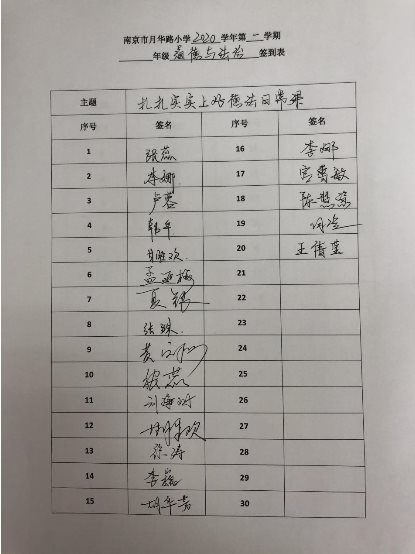 南京市月华路小学2020学年第一学期
年级道德与法治 签到表
主题 扎扎实实上好德法日常课
序号 签名 序号 签名
1 张蕊 16 李娜
2 李娜 17
3 卢蓉 18 陈慧蓉
4 韩冬 19
5 甘唯欢 20 王倩莹
6 孟亚梅 21
7 夏锦 22
8 张珠 23
9 24
10 25
11 26
12 27
13 徐涛 28
14 李磊 29
15 胡华芳 30